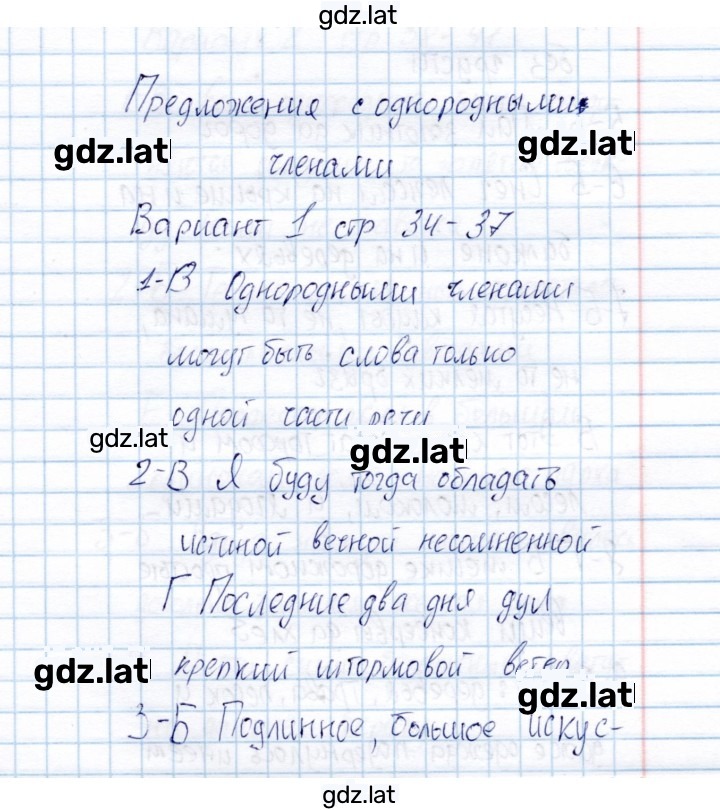 gdz.lat
Предложения с однородными
gdz.lat
gdz.lat
членами
Вариант 1 стр 34-37
1-В Однородными членами
могут быть слова только
одной части речи
gdz.lat
gdz.lat
2-В Я буду тогда обладать
истиной вечной несомненной
Г Последние два дня дул
крепкий штормовой ветер
gdz.lat
gdz.lat
3-Б Подлинное, большое искус-
gdz.lat